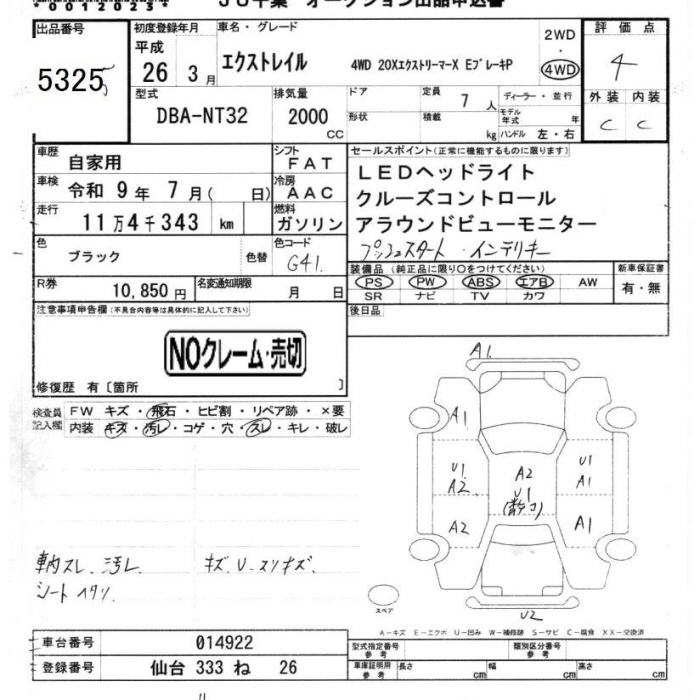 00012025
JU千葉 オークション出品申込書
出品番号 初度登録年月 車名・グレード 2WD 評価点
5325 平成 26 3月 エクストレイル 4WD 20XエクストリーマーX EブレーキP ・ 4WD 4
型式 排気量 ドア 定員 7人 ディーラー・並行 外装 内装
DBA-NT32 2000 CC 形状 積載 kg モデル年式 年 ハンドル 左・右 C C
車歴 自家用 シフト FAT セールスポイント(正常に機能するものに限ります)
車検 令和 9年 7月( 日) 冷房 AAC LEDヘッドライト
走行 11万4千343 km 燃料 ガソリン クルーズコントロール
アラウンドビューモニター
色 ブラック 色替 色コード G41 プッシュスタート・インテリキー
R券 10,850円 名変通知期限 月 日 装備品(純正品に限り○をつけてください) 新車保証書
PS PW ABS エアB AW 有・無
SR ナビ TV カワ
注意事項申告欄(不具合内容等は具体的に記入して下さい) 後日品
NOクレーム・売切
修復歴 有〔箇所 〕
検査員記入欄 FW キズ・飛石・ヒビ割・リペア跡・×要
内装 キズ・汚レ・コゲ・穴・スレ・キレ・破レ
A1
A1
U1 A2 A2 U1 U1 A1
A2 A1
U2
車内スレ、汚レ キズ、U-スリキズ、
シートヘタリ
スペア
A-キズ E-エクボ U-凹み W-補修跡 S-サビ C-腐食 XX-交換済
車台番号 014922 型式指定番号 参考 類別区分番号 参考
登録番号 仙台 333 ね 26 車庫証明用 参考 長さ cm 幅 cm 高さ cm